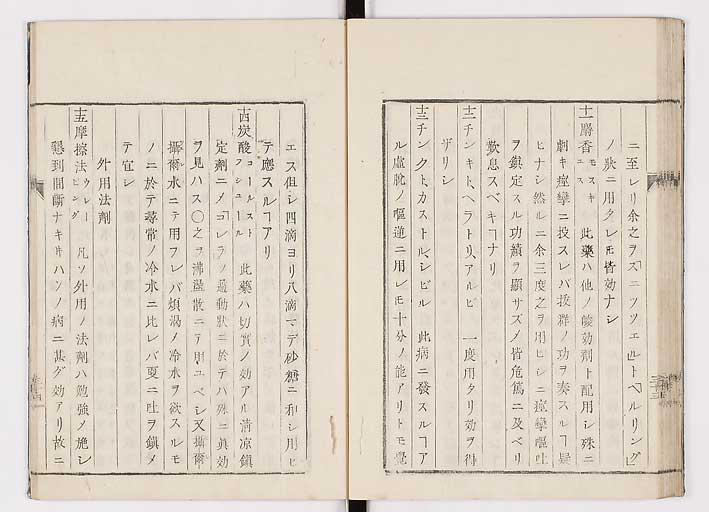 ニ至レリ余之ヲ「スニツツエ」ト「ヘルリング」
ノ狀ニ用タレ𪜈皆効ナシ
十一麝香 モスキュス 此藥ハ他ノ峻効劑ト配用シ殊ニ
劇キ痙攣ニ投スレバ拔群ノ功ヲ奏スルヿ疑
ヒナシ然ルニ余三度之ヲ用ヒシニ痙攣嘔吐
ヲ鎭定スル功績ヲ顯サズノ皆危篤ニ及ベリ
歎息スベキヿナリ
十二チンキト、ヘラトリ、アルビ 一度用タリ効ヲ得
ザリシ
十三チンクト、カストル、シビル 此病ニ發スルヿア
ル虛脫ノ嘔逆ニ用レ𪜈十分ノ能アリトモ覺
エス但シ四滴ヨリ八滴マデ砂糖ニ和シ用ヒ
テ應スルヿアリ
十四炭酸 コールストフシユール 此藥ハ切實ノ効アル淸凉鎭
定劑ニメ「コレラ」ノ過動狀ニ於テハ殊ニ眞効
ヲ見ハス〇之ヲ沸騰散ニテ用ユベシ又攝爾
攝爾水ニテ用フレバ煩渴ノ冷水ヲ欲スルモ
ノニ於テ尋常ノ冷水ニ比レバ更ニ吐ヲ鎭メ
テ宜シ
外用法劑
十五摩擦法 ウレービング 凡ソ外用ノ法劑ハ勉強メ施シ
懇到間斷ナキ𪜈ハ此ノ病ニ甚ダ効アリ故ニ